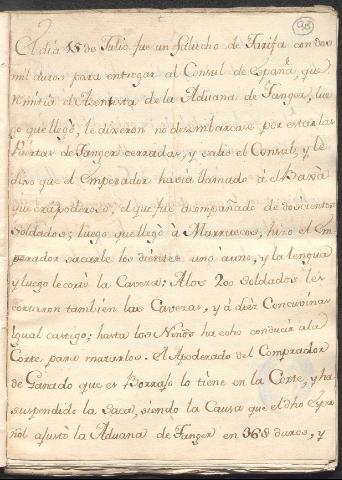 98
El dia 15 de Julio fue un falucho de Tarifa con dos
mil duros para entregar al Consul de España, que
remitia el Asentista de la Aduana de Tanger, lue
go que llegò, le dixeron no desembarcase por estar las
Puertas de Tanger cerradas, y salio el Consul, y le
dixo que el Emperador havia llamado à el Baxà
que era poderoso, el que fue acompañado de doscientos
Soldados; luego que llegò à Marruecos, hizo el Em
perador sacarle los dientes uno à uno, y la lengua
y luego le cortò la Caveza: A los 200 soldados les
cortaron tambien las Cavezas, y à diez Concuvinas
igual castigo; hasta los Niños ha echo conducir a la
Corte para matarlos. El Apoderado del Comprador
de Ganado que es Borrajo lo tiene en la Corte, y ha
suspendido la Saca, siendo la Causa que el dho Espa
ñol ajustò la Aduana de Tanger en 368 duros, y